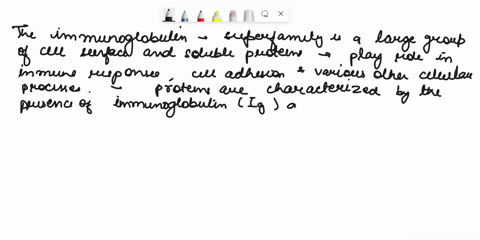 The immunoglobulin → superfamily is a large group
of cell surface and soluble proteins → play role in
immune response, cell adhesion & various other cellular
processes. → proteins are characterized by the
presence of immunoglobulin (Ig) a